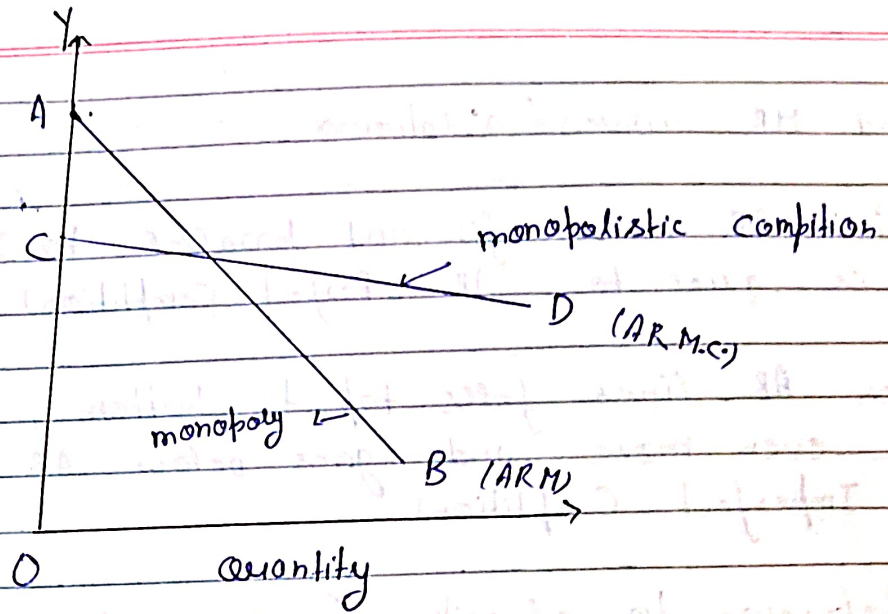 Y
A
C
monopolistic Compition
D (AR M.C.)
monopoly
B (ARM)
O Quontity